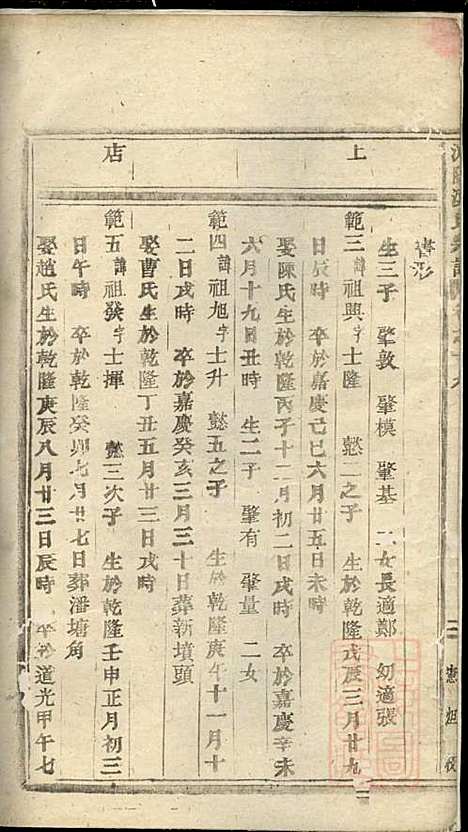 上店
生三子 肇敦 肇模 肇基 二女長適鄭 幼適張
範三諱祖興字士隆 懿二之子 生於乾隆戊辰三月廿九
日辰時 卒於嘉慶己巳六月廿五日未時
娶陳氏生於乾隆丙子十二月初二日戌時 卒於嘉慶辛未
六月十九日丑時 生二子 肇有 肇量 二女
範四諱祖旭字士升 懿五之子 生於乾隆庚午十一月十
二日戌時 卒於嘉慶癸亥三月三十日葬新墳頭
娶曹氏生於乾隆丁丑五月廿三日戌時
範五諱祖發字士揮 懿三次子 生於乾隆壬申正月初三
日午時 卒於乾隆癸卯七月廿七日葬潘塘角
娶趙氏生於乾隆庚辰八月廿三日辰時 卒於道光甲午七